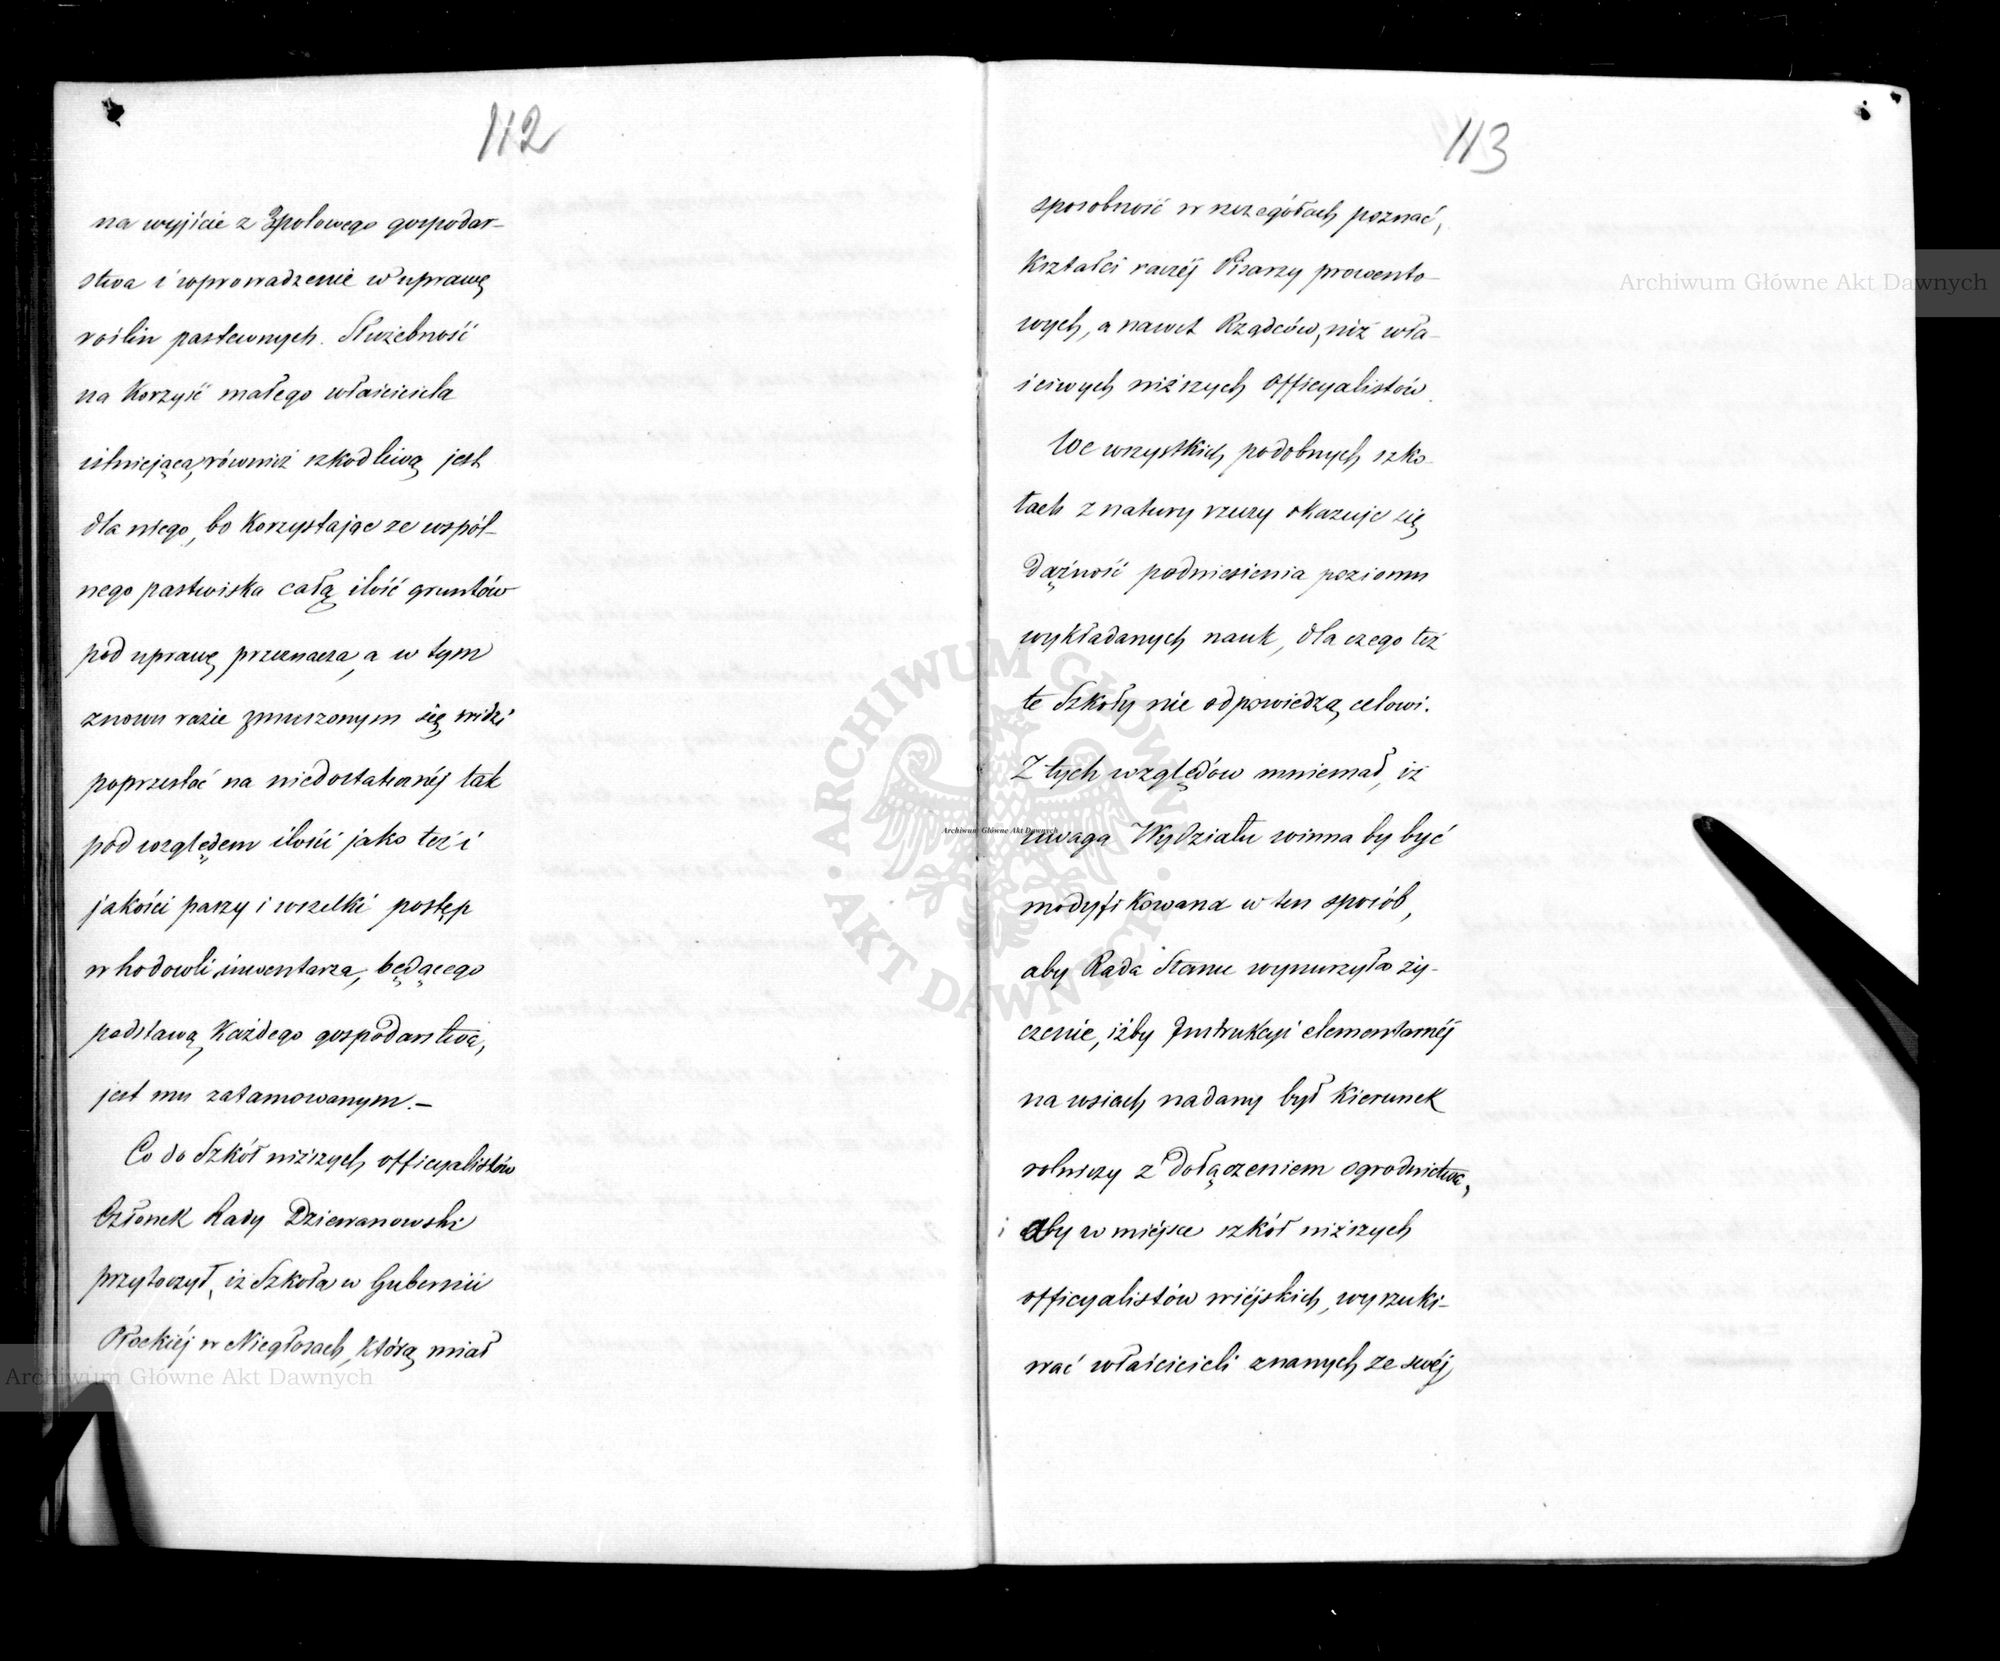 112
na wyjście z 3polowego gospodar-
stwa i wprowadzenie w uprawę
roślin pastewnych. Służebność
na korzyść małego właściciela
istniejąca, również szkodliwą jest
dla niego, bo korzystając ze wspól-
nego pastwiska całą ilość gruntów
pod uprawę przeznacza, a w tym
znowu razie zmuszonym się widzi
poprzestać na niedostatecznéj tak
pod względem ilości jako też i
jakości paszy i wszelki postęp
w hodowli inwentarza, będącego
podstawą każdego gospodarstwa,
jest mu zatamowanym.—
Co do Szkół niższych officyalistów
Członek Rady Dziewanowski
przytoczył, iż Szkoła w Gubernii
Płockiéj w Niegłosach, którą miał
113
sposobność w szczegółach poznać,
kształci raczéj Pisarzy prowento-
wych, a nawet Rządców, niż wła-
ściwych niższych Officyalistów.
We wszystkich podobnych szko-
łach z natury rzeczy okazuje się
dążność podniesienia poziomu
wykładanych nauk, dla czego też
te Szkoły nie odpowiedzą celowi.
Z tych względów mniemał, iż
uwaga Wydziału winna by być
modyfikowana w ten sposób,
aby Rada Stanu wynurzyła ży-
czenie, iżby Instrukcyi elementarnéj
na wsiach nadany był kierunek
rolniczy z dołączeniem ogrodnictwa,
i aby w miéjsce szkół niższych
officyalistów wiéjskich, wyszuki-
wać właścicieli znanych ze swéj
Archiwum Główne Akt Dawnych
Archiwum Główne Akt Dawnych
Archiwum Główne Akt Dawnych
ARCHIWUM GŁÓWNE · AKT DAWNYCH ·